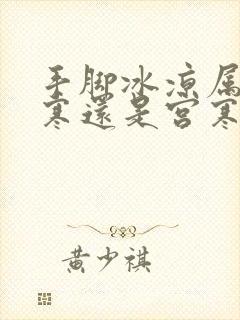 手脚冰凉属
寒還是宮寒
黄少祺